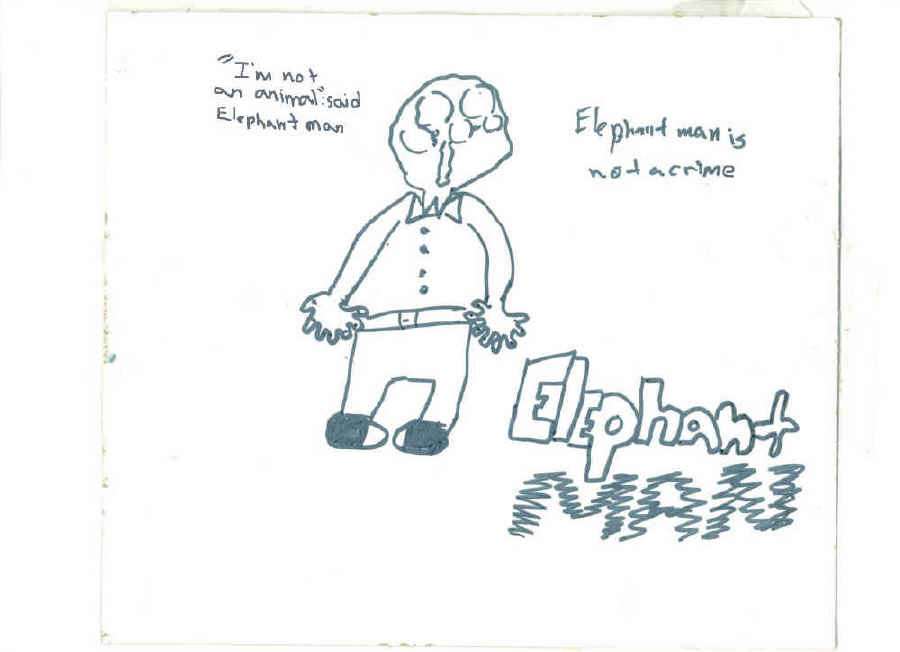 "I'm not
an animal" said
Elephant man
Elephant man is
not a crime
Elephant
MAN